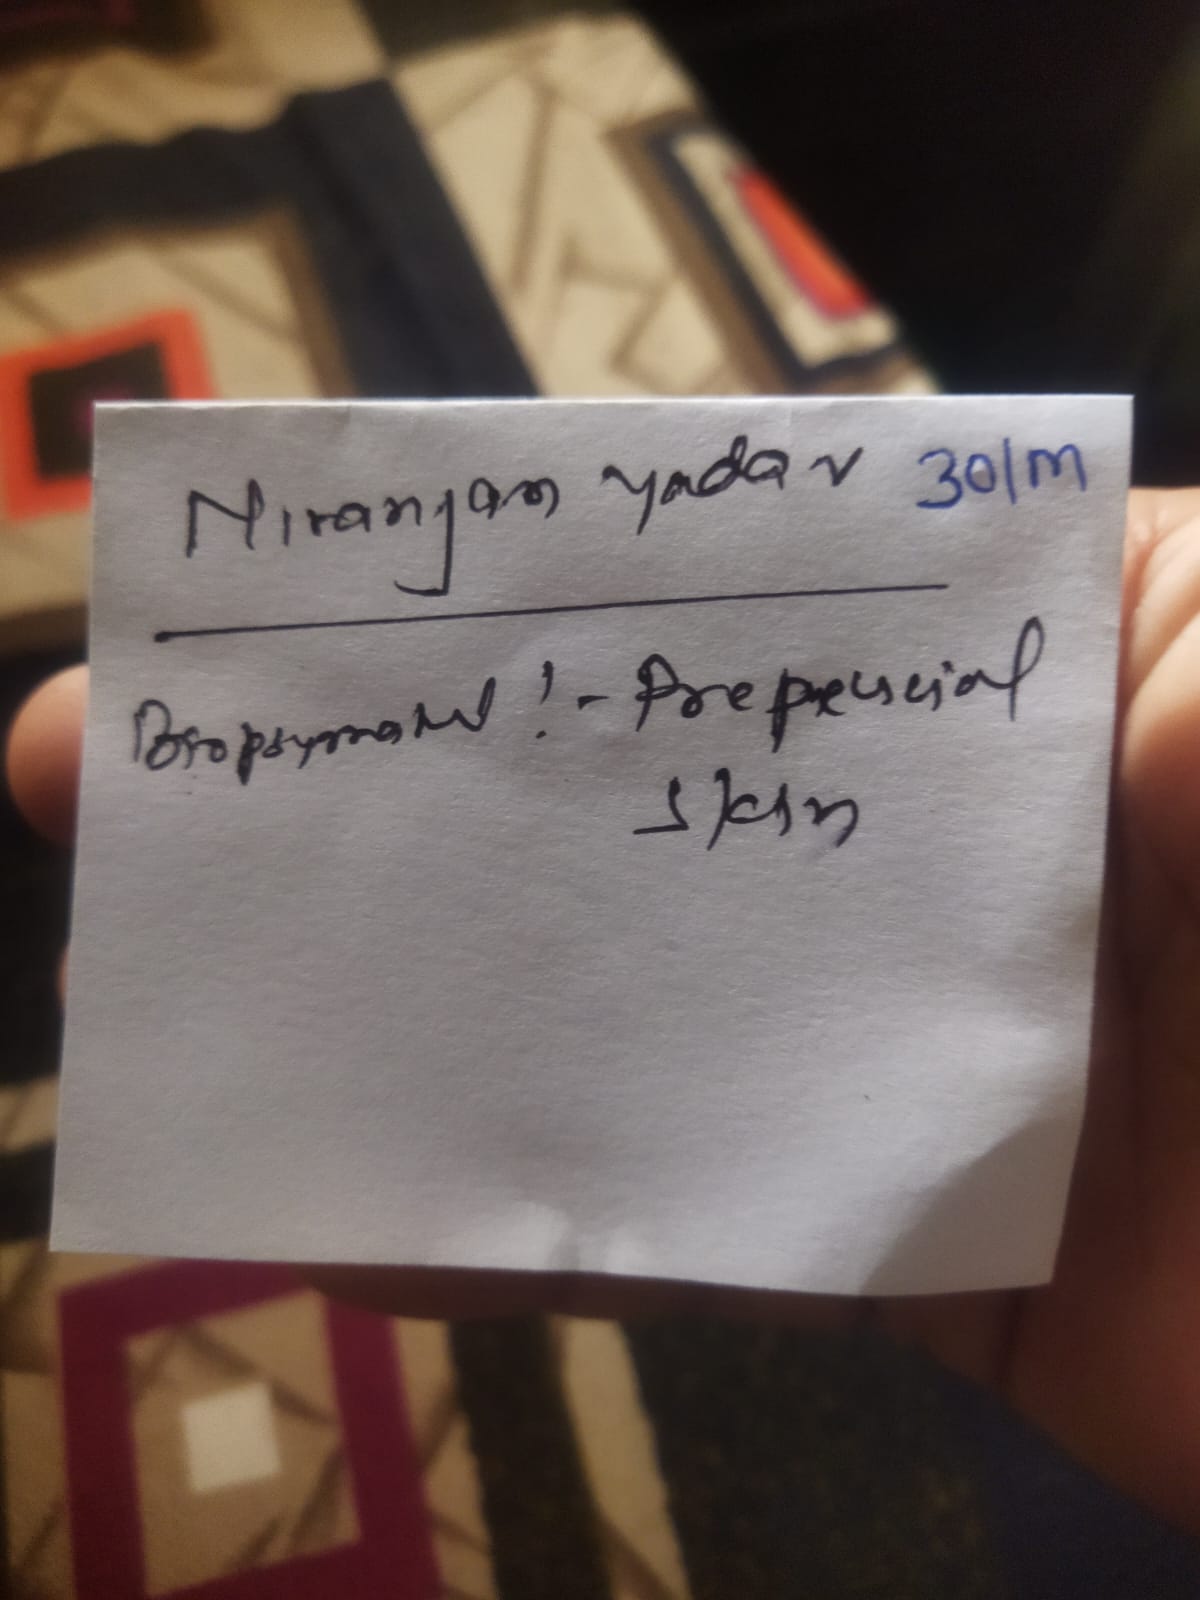 Niranjan yadav 30/m
Biopsymatrl :- Prepeucial
skin